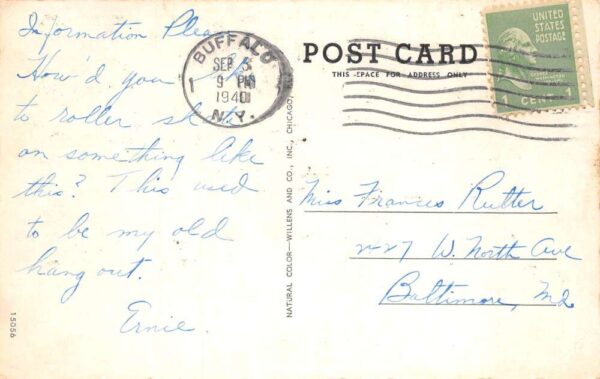 Information Please
How'd you like
to roller skate
on something like
this? This used
to be my old
hang out.
Ernie.
15056
BUFFALO
SEP 3
9 PM
1940
N.Y.
1
NATURAL COLOR—WILLENS AND CO., INC., CHICAGO,
POST CARD
THIS SPACE FOR ADDRESS ONLY
UNITED
STATES
POSTAGE
1 CENT 1
Miss Frances Rutter
227 W. North Ave
Baltimore, Md.